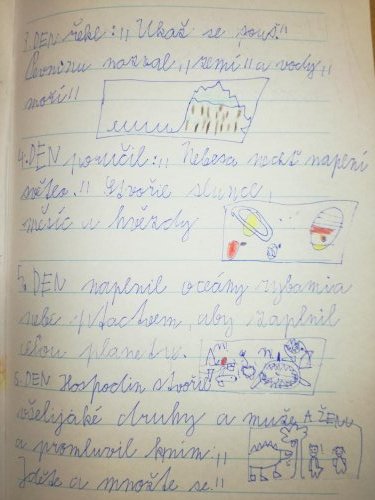 3. DEN řekl: „Ukaž se souš."
Pevninu nazval „zemí" a vody „
moří"
4. DEN poručil: „Nebesa nechť naplní
světlo." Stvořil slunce,
měsíc a hvězdy
5. DEN naplnil oceány rybami a
nebe ptactvem, aby zaplnil
celou planetu.
6. DEN Hospodin stvořil
všelijaké druhy a muže A ŽENU
a promluvil k nim „
Jděte a množte se"